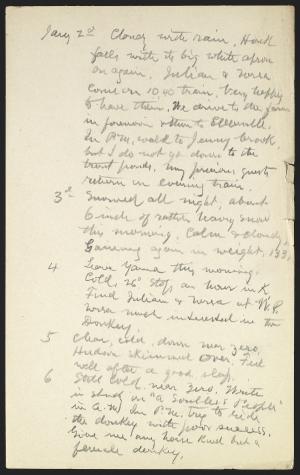 Jany 2d Cloudy with rain, Honk
falls with its big white apron
on again. Julian &
come on 10.40 train. Very happy
to have them. We drive to the farm
in forenoon & then to Ellenville.
In P.M. walk to Jenny brook,
but I do not go down to the
trout ponds. My precious guests
return on evening train.
3d Snowed all night, about
6 inch of rather heavy snow
this morning. Calm & cloudy
Gaining again in weight, 133
4 Leave Yama this morning.
Cold, 26° Stop an hour in K.
Find Julian & at W.P.
much interested in the
Donkey.
5 Clear, cold, down near zero.
Hudson skimmed over. Feel
well after a good sleep.
6 Still cold, near zero. Write
in study on "a Scribbler's
in a.m. In P.M. try to ride
the donkey with poor success.
Give me any horse kind but a
female donkey.